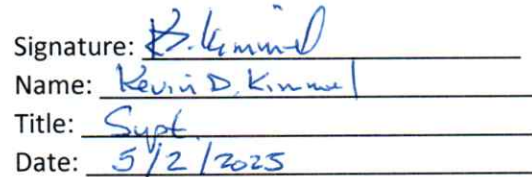 Signature: K. Kimmel
Name: Kevin D. Kimmel
Title: Supt.
Date: 5/2/2025